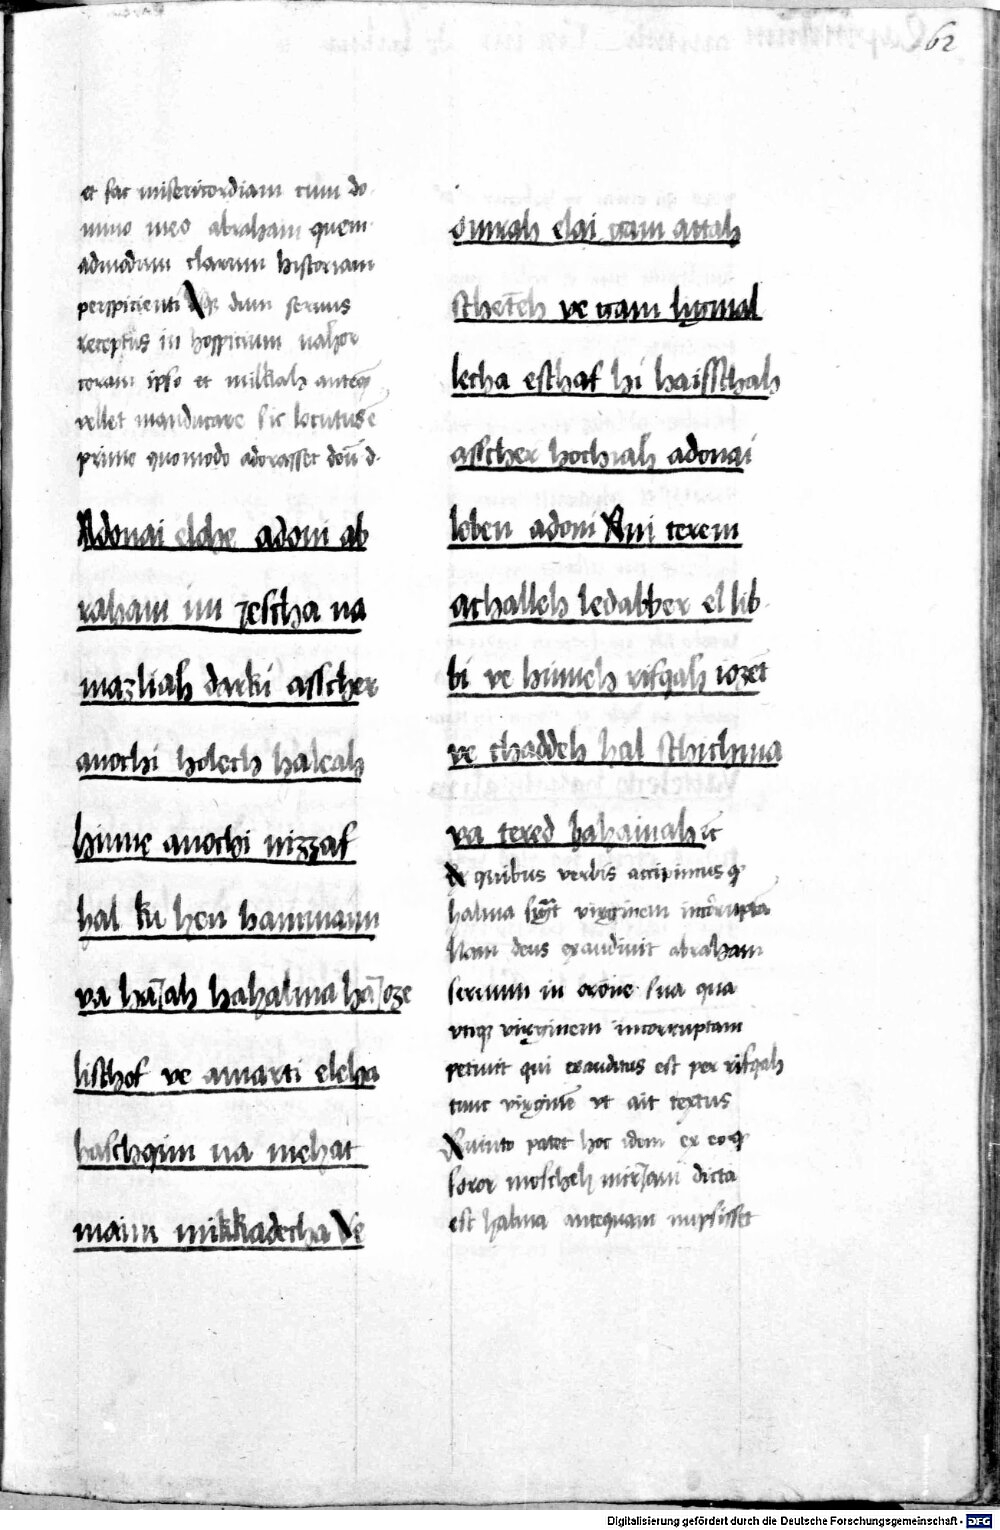 62
et fac misericordiam cum do
mino meo abraham quem
admodum clarum historiam
perspicienti dum servus
receptus in hospicium nahor
coram ipso et milkah anteqͣ
vellet manducare sic locutus ē
primo quomodo adorasset doūm d.
Adonai elohe adoni ab
raham im jescha na
mazliah darki asscher
anochi holech haleah
hinne anochi nizzaf
hal hen hammaim
va hajah hahalma hajoze
lischof ve amarti eleha
haschqim na mehat
maim mikkadecha Ve
omrah elai gam attah
scheteh ve gam ligmal
lecha eschaf hi haisschah
asscher hochiah adonai
loben adoni Ani terem
achalleh ledabber el lib
bi ve hinneh rifqah iozet
ve chaddeh hal schichma
va tered hahainah
Ex quibus verbis accipimus qͣ
halma virginem incorruptā
Nam deus exaudivit abraham
servum in orōne sua qua
utiqͣ virginem incorruptam
petiuit qui exauditus est per rifqah
tunc virginē ut ait textus
Quinto patet hoc idem ex eo qͣ
soror moscheh mirjam dicta
est halma antequam nupsisset
Digitalisierung gefördert durch die Deutsche Forschungsgemeinschaft - DFG